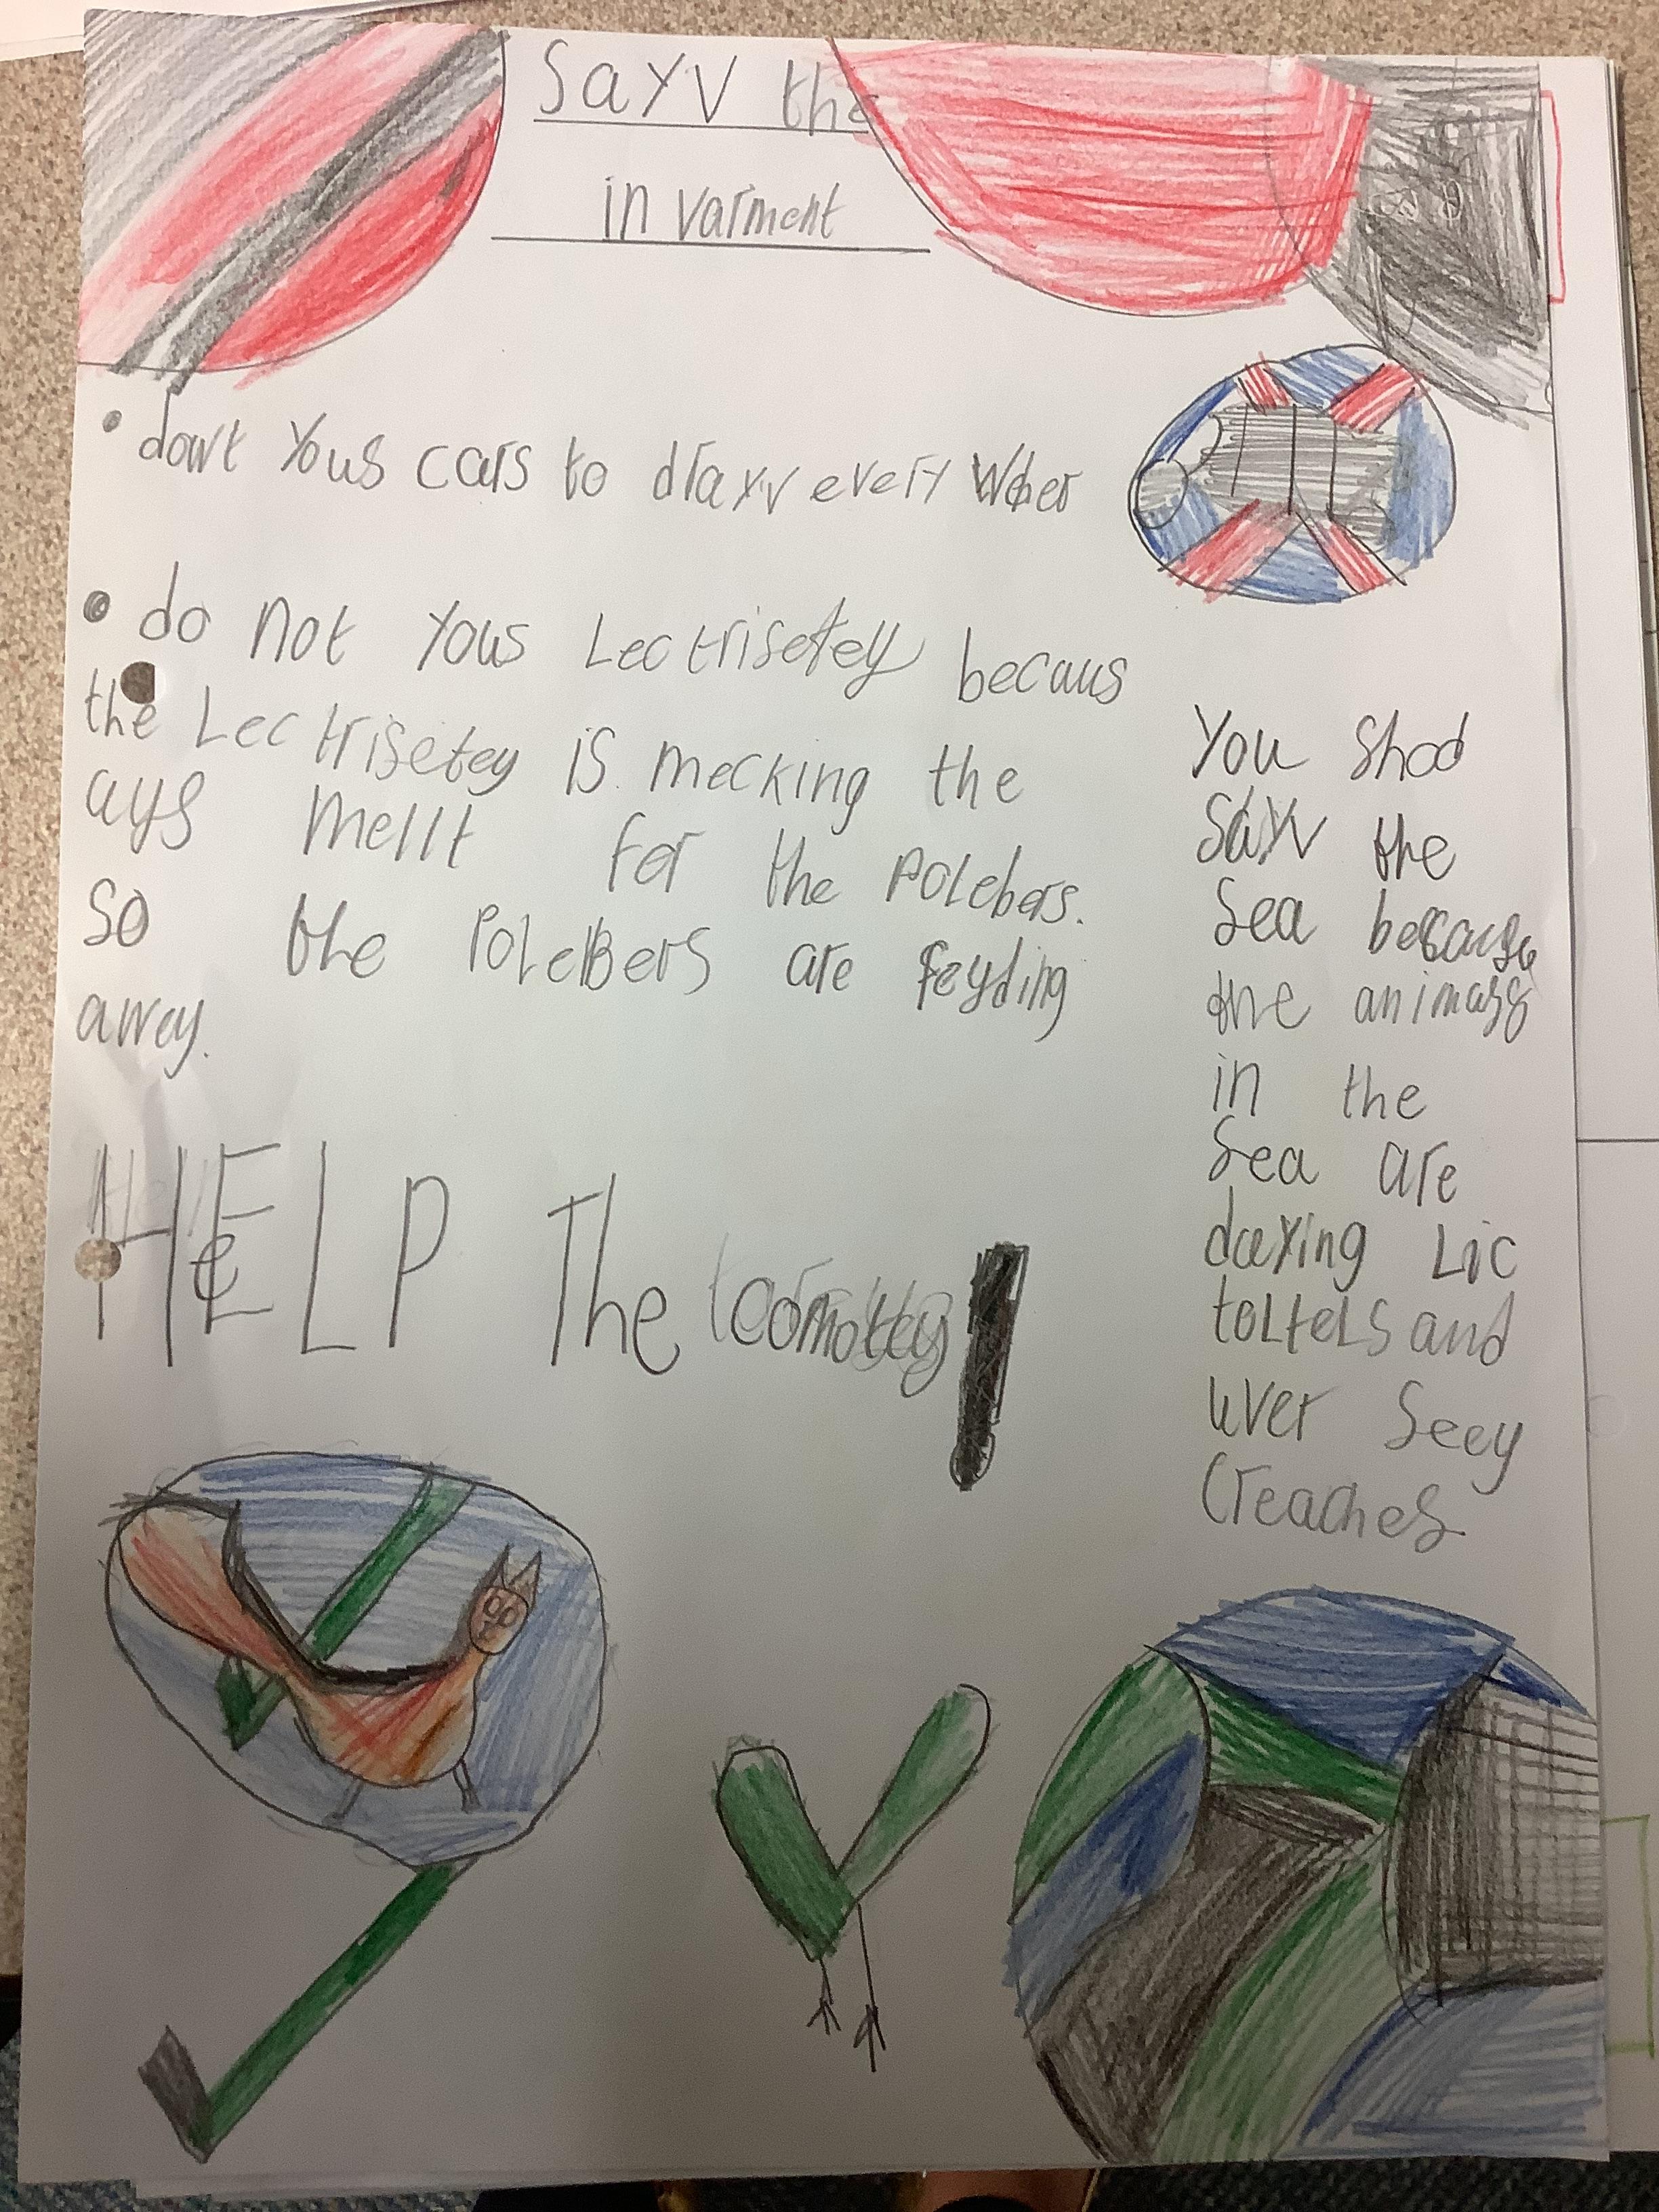 sayv the
in varment
• dowt yous cars to drayv every wher
• do not yous Lectrisetey becaus
the Lectrisetey is mecking the
ays mellt for the polebers.
so the poleBers are feyding
awey.
HELP The
You shod
sayv the
sea because
the animals
in the
sea are
daying Lic
toltels and
uver seey
creaches